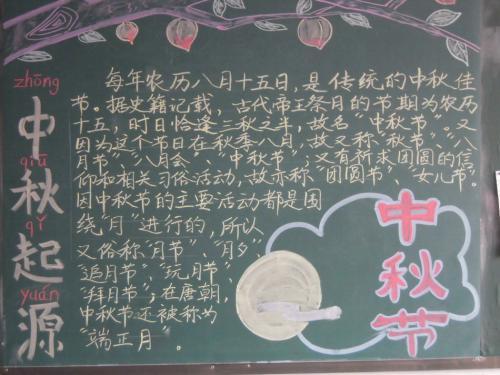 zhōng
中
qiū
秋
qǐ
起
yuán
源
每年农历八月十五日，是传统的中秋佳
节。据史籍记载，古代帝王祭月的节期为农历
十五，时日恰逢三秋之半，故名“中秋节”。又
因为这个节日在秋季八月，故又称“秋节”、“八
月节”、“八月会”、“中秋节”；又有祈求团圆的信
仰和相关习俗活动，故亦称“团圆节”、“女儿节”。
因中秋节的主要活动都是围
绕“月”进行的，所以
又俗称“月节”、“月夕”、
“追月节”、“玩月节”、
“拜月节”；在唐朝，
中秋节还被称为
“端正月”。
中秋节